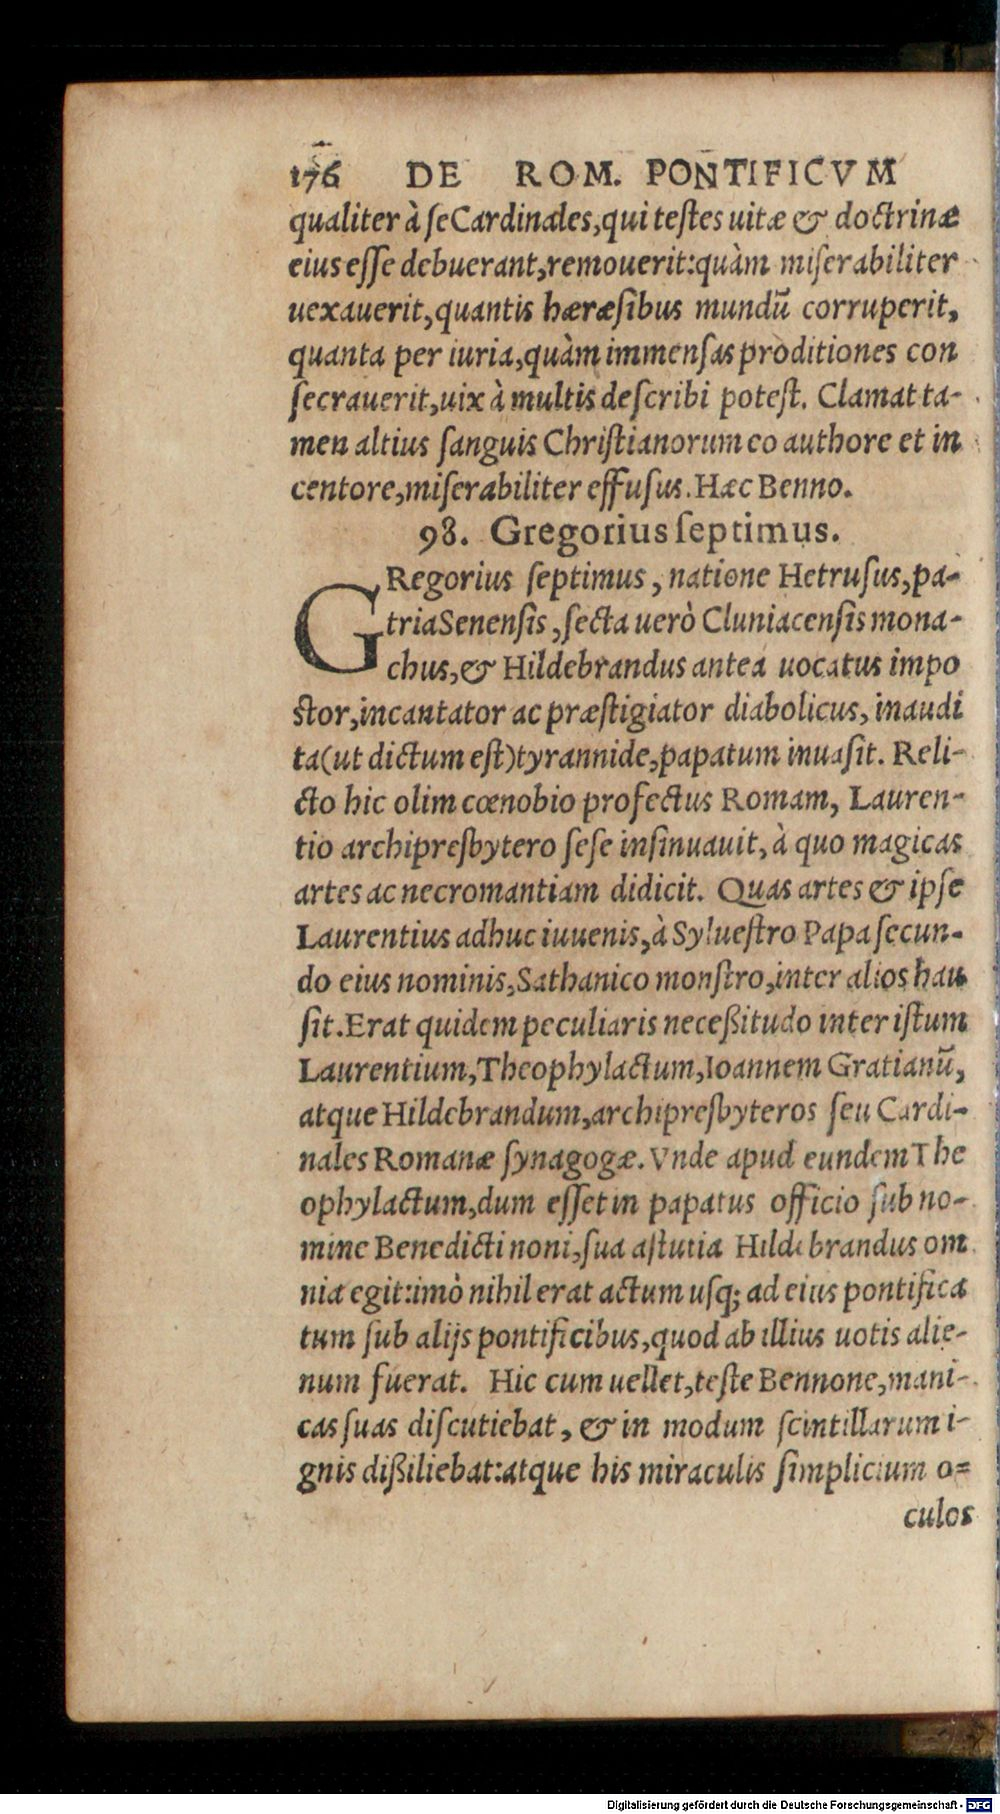 176 DE ROM. PONTIFICVM
qualiter à se Cardinales, qui testes uitæ & doctrinæ
eius esse debuerant, remouerit: quàm miserabiliter
uexauerit, quantis hæræsibus mundũ corruperit,
quanta per iuria, quàm immensas proditiones con
secrauerit, uix à multis describi potest. Clamat ta-
men altius sanguis Christianorum eo authore et in
centore, miserabiliter effusus. Hæc Benno.
98. Gregorius septimus.
GRegorius septimus, natione Hetruscus, pa-
tria Senensis, secta uerò Cluniacensis mona-
chus, & Hildebrandus antea uocatus impo
stor, incantator ac præstigiator diabolicus, inaudi
ta (ut dictum est) tyrannide, papatum inuasit. Reli-
cto hic olim cœnobio profectus Romam, Lauren-
tio archipresbytero sese insinuauit, à quo magicas
artes ac necromantiam didicit. Quas artes & ipse
Laurentius adhuc iuuenis, à Syluestro Papa secun-
do eius nominis, Sathanico monstro, inter alios hau
sit. Erat quidem peculiaris neceßitudo inter istum
Laurentium, Theophylactum, Ioannem Gratianũ,
atque Hildebrandum, archipresbyteros seu Cardi-
nales Romanæ synagogæ. Vnde apud eundem The
ophylactum, dum esset in papatus officio sub no-
mine Benedicti noni, sua astutia Hildebrandus om
nia egit: imò nihil erat actum usq; ad eius pontifica
tum sub alijs pontificibus, quod ab illius uotis alie-
num fuerat. Hic cum uellet, teste Bennone, mani-
cas suas discutiebat, & in modum scintillarum i-
gnis dißiliebat: atque his miraculis simplicium o=
culos
Digitalisierung gefördert durch die Deutsche Forschungsgemeinschaft - DFG